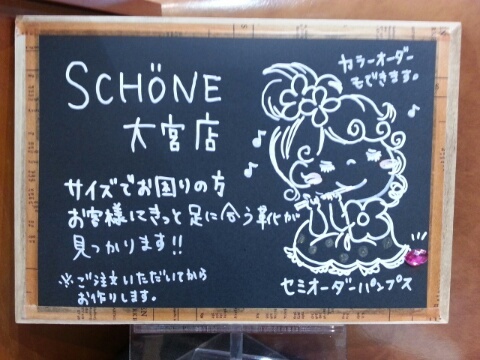 SCHÖNE
大宮店
カラーオーダー
もできます。
サイズでお困りの方
お客様にきっと足に合う靴が
見つかります!!
※ご注文いただいてから
お作りします。
セミオーダーパンプス